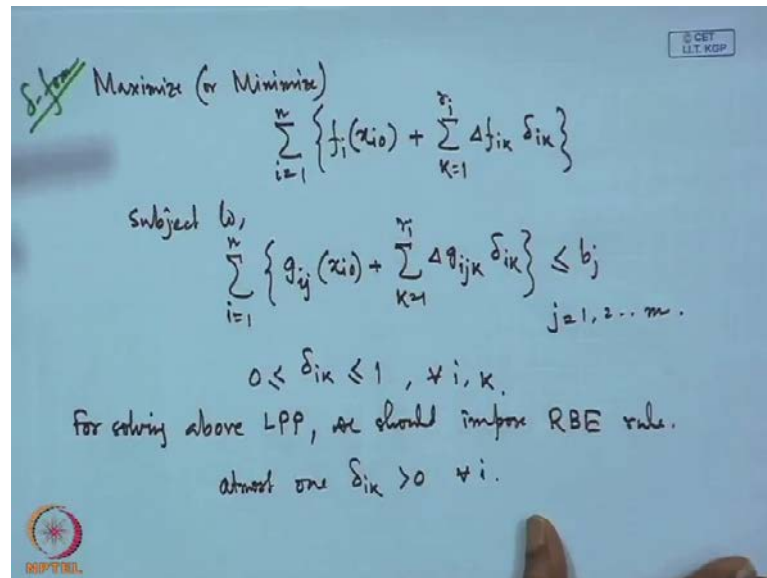 © CET
I.I.T. KGP
δ-form
Maximize (or Minimize)
\sum_{i=1}^{n} \{ f_i(x_{i0}) + \sum_{k=1}^{r_i} Δf_{ik} δ_{ik} \}
Subject to,
\sum_{i=1}^{n} \{ g_{ij}(x_{i0}) + \sum_{k=1}^{r_i} Δg_{ijk} δ_{ik} \} ≤ b_j
j=1, 2 ... m.
0 ≤ δ_{ik} ≤ 1, ∀ i, k.
For solving above LPP, we should impose RBE rule.
atmost one δ_{ik} > 0 ∀ i.
NPTEL